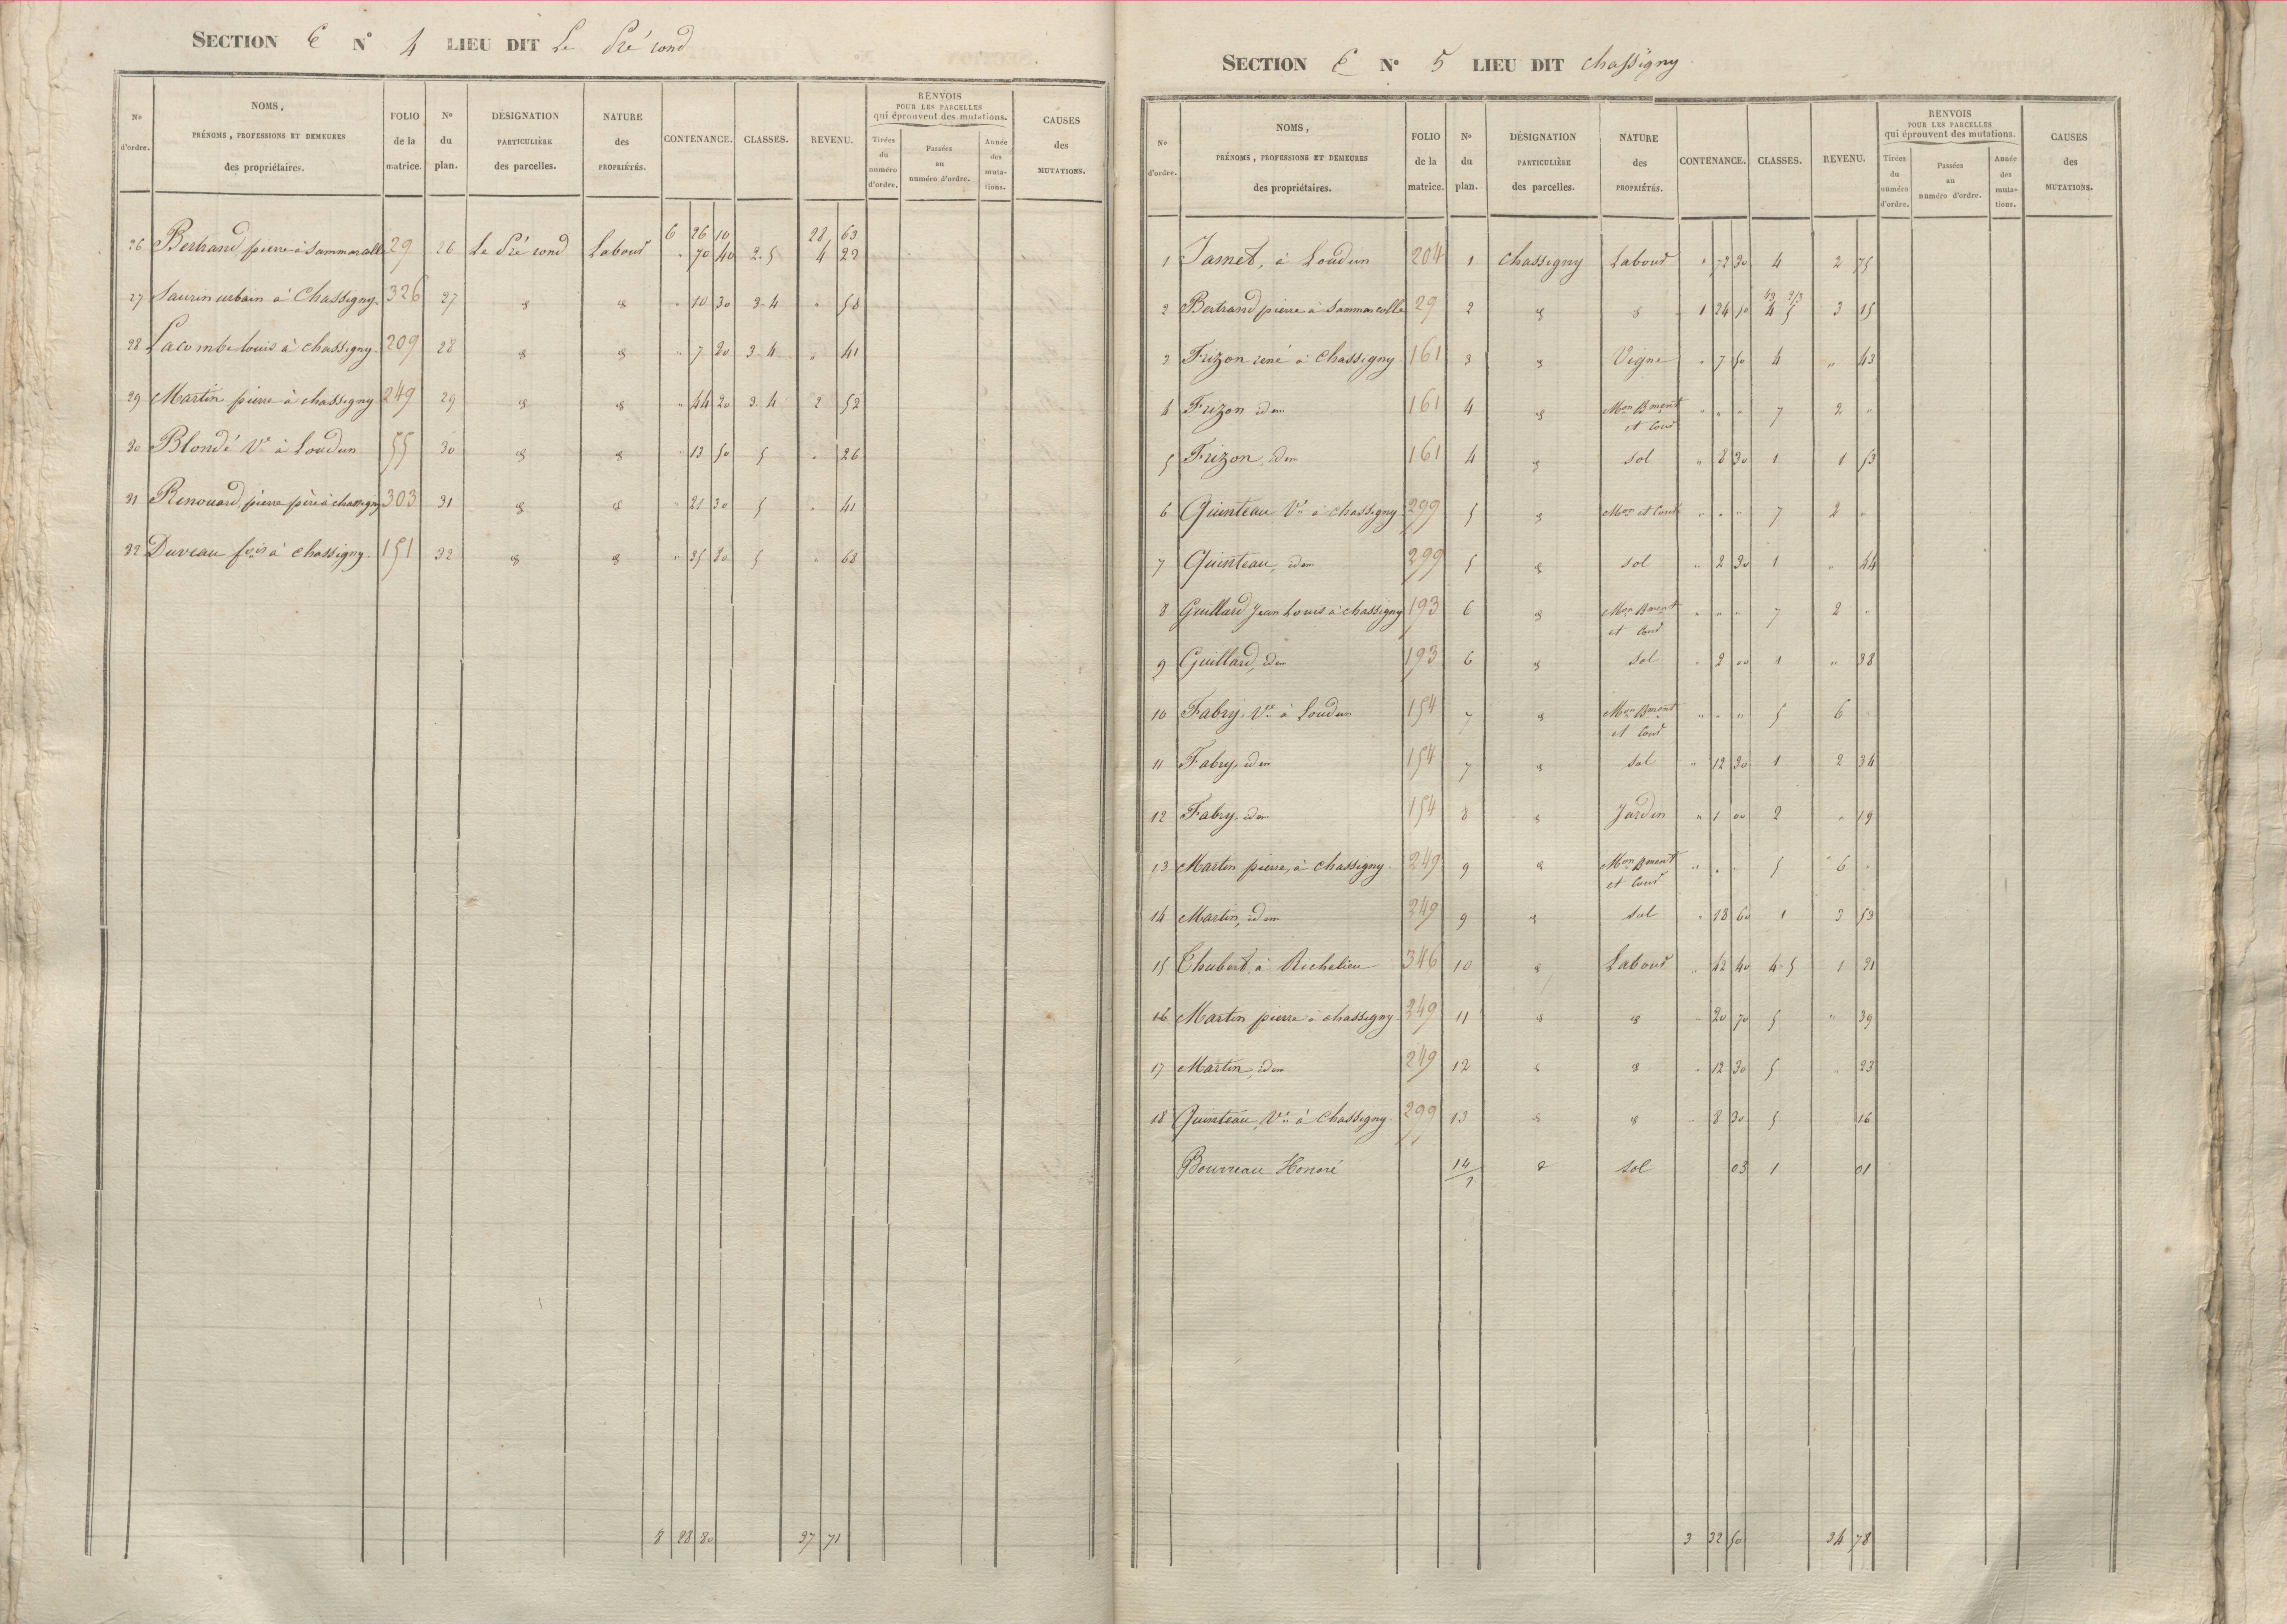 SECTION E N° 4 LIEU DIT Le Pré rond
N° d'ordre. NOMS, PRÉNOMS, PROFESSIONS ET DEMEURES des propriétaires. FOLIO de la matrice. N° du plan. DÉSIGNATION PARTICULIÈRE des parcelles. NATURE des PROPRIÉTÉS. CONTENANCE. CLASSES. REVENU. RENVOIS POUR LES PARCELLES qui éprouvent des mutations. Tirées du numéro d'ordre. Passées au numéro d'ordre. Année des mutations. CAUSES des MUTATIONS.
6 26 10 28 63
26 Bertrand pierre à Sammarcolle 29 26 Le Pré rond Labour " 70 40 2.5 4 22
27 Saurin urbain à Chassigny 326 27 " 10 30 3.4 " 58
28 Lacombe Louis à chassigny 209 28 " 7 20 3.4 " 41
29 Martin pierre à chassigny 249 29 " 44 20 3.4 2 52
30 Blondé Ve à Loudun 55 30 " 13 50 5 " 26
31 Renouard pierre père à chassigny 303 31 " 21 30 5 " 41
32 Duveau fois à chassigny 151 32 " 35 80 5 " 68
8 28 80 37 71
SECTION E N° 5 LIEU DIT chassigny
N° d'ordre. NOMS, PRÉNOMS, PROFESSIONS ET DEMEURES des propriétaires. FOLIO de la matrice. N° du plan. DÉSIGNATION PARTICULIÈRE des parcelles. NATURE des PROPRIÉTÉS. CONTENANCE. CLASSES. REVENU. RENVOIS POUR LES PARCELLES qui éprouvent des mutations. Tirées du numéro d'ordre. Passées au numéro d'ordre. Année des mutations. CAUSES des MUTATIONS.
1 Jamet, à Loudun 204 1 chassigny Labour " 72 30 4 2 75
2 Bertrand pierre à Sammarcolle 29 2 1 24 10 4 5 3 15
3 Frizon rené à Chassigny 161 3 Vigne " 7 50 4 " 43
4 Frizon idem 161 4 Mon Bment et Cour " " " 7 2 "
5 Frizon, idem 161 4 sol " 8 30 1 1 53
6 Quinteau Ve à chassigny 299 5 Mon et Cour " " " 7 2 "
7 Quinteau, idem 299 5 sol " 2 30 1 " 44
8 Guillard Jean Louis à chassigny 193 6 Mon Bment et Cour " " " 7 2 "
9 Guillard, idem 193 6 sol " 2 00 1 " 38
10 Fabry, Ve à Loudun 154 7 Mon Bment et Cour " " " 5 6
11 Fabry, idem 154 7 sol " 12 30 1 2 34
12 Fabry, idem 154 8 Jardin " 1 00 2 " 19
13 Martin pierre, à chassigny 249 9 Mon Bment et Cour " " " 5 6 "
14 Martin, idem 249 9 sol " 18 60 1 3 53
15 Chubert, à Richelieu 346 10 Labour " 42 40 4-5 1 21
16 Martin pierre à chassigny 249 11 " 20 70 5 " 39
17 Martin, idem 249 12 " 12 30 5 23
18 Quinteau, Ve à Chassigny 299 13 " 8 30 5 16
Bourreau Honoré 14/1 sol 03 1 01
3 32 50 34 78